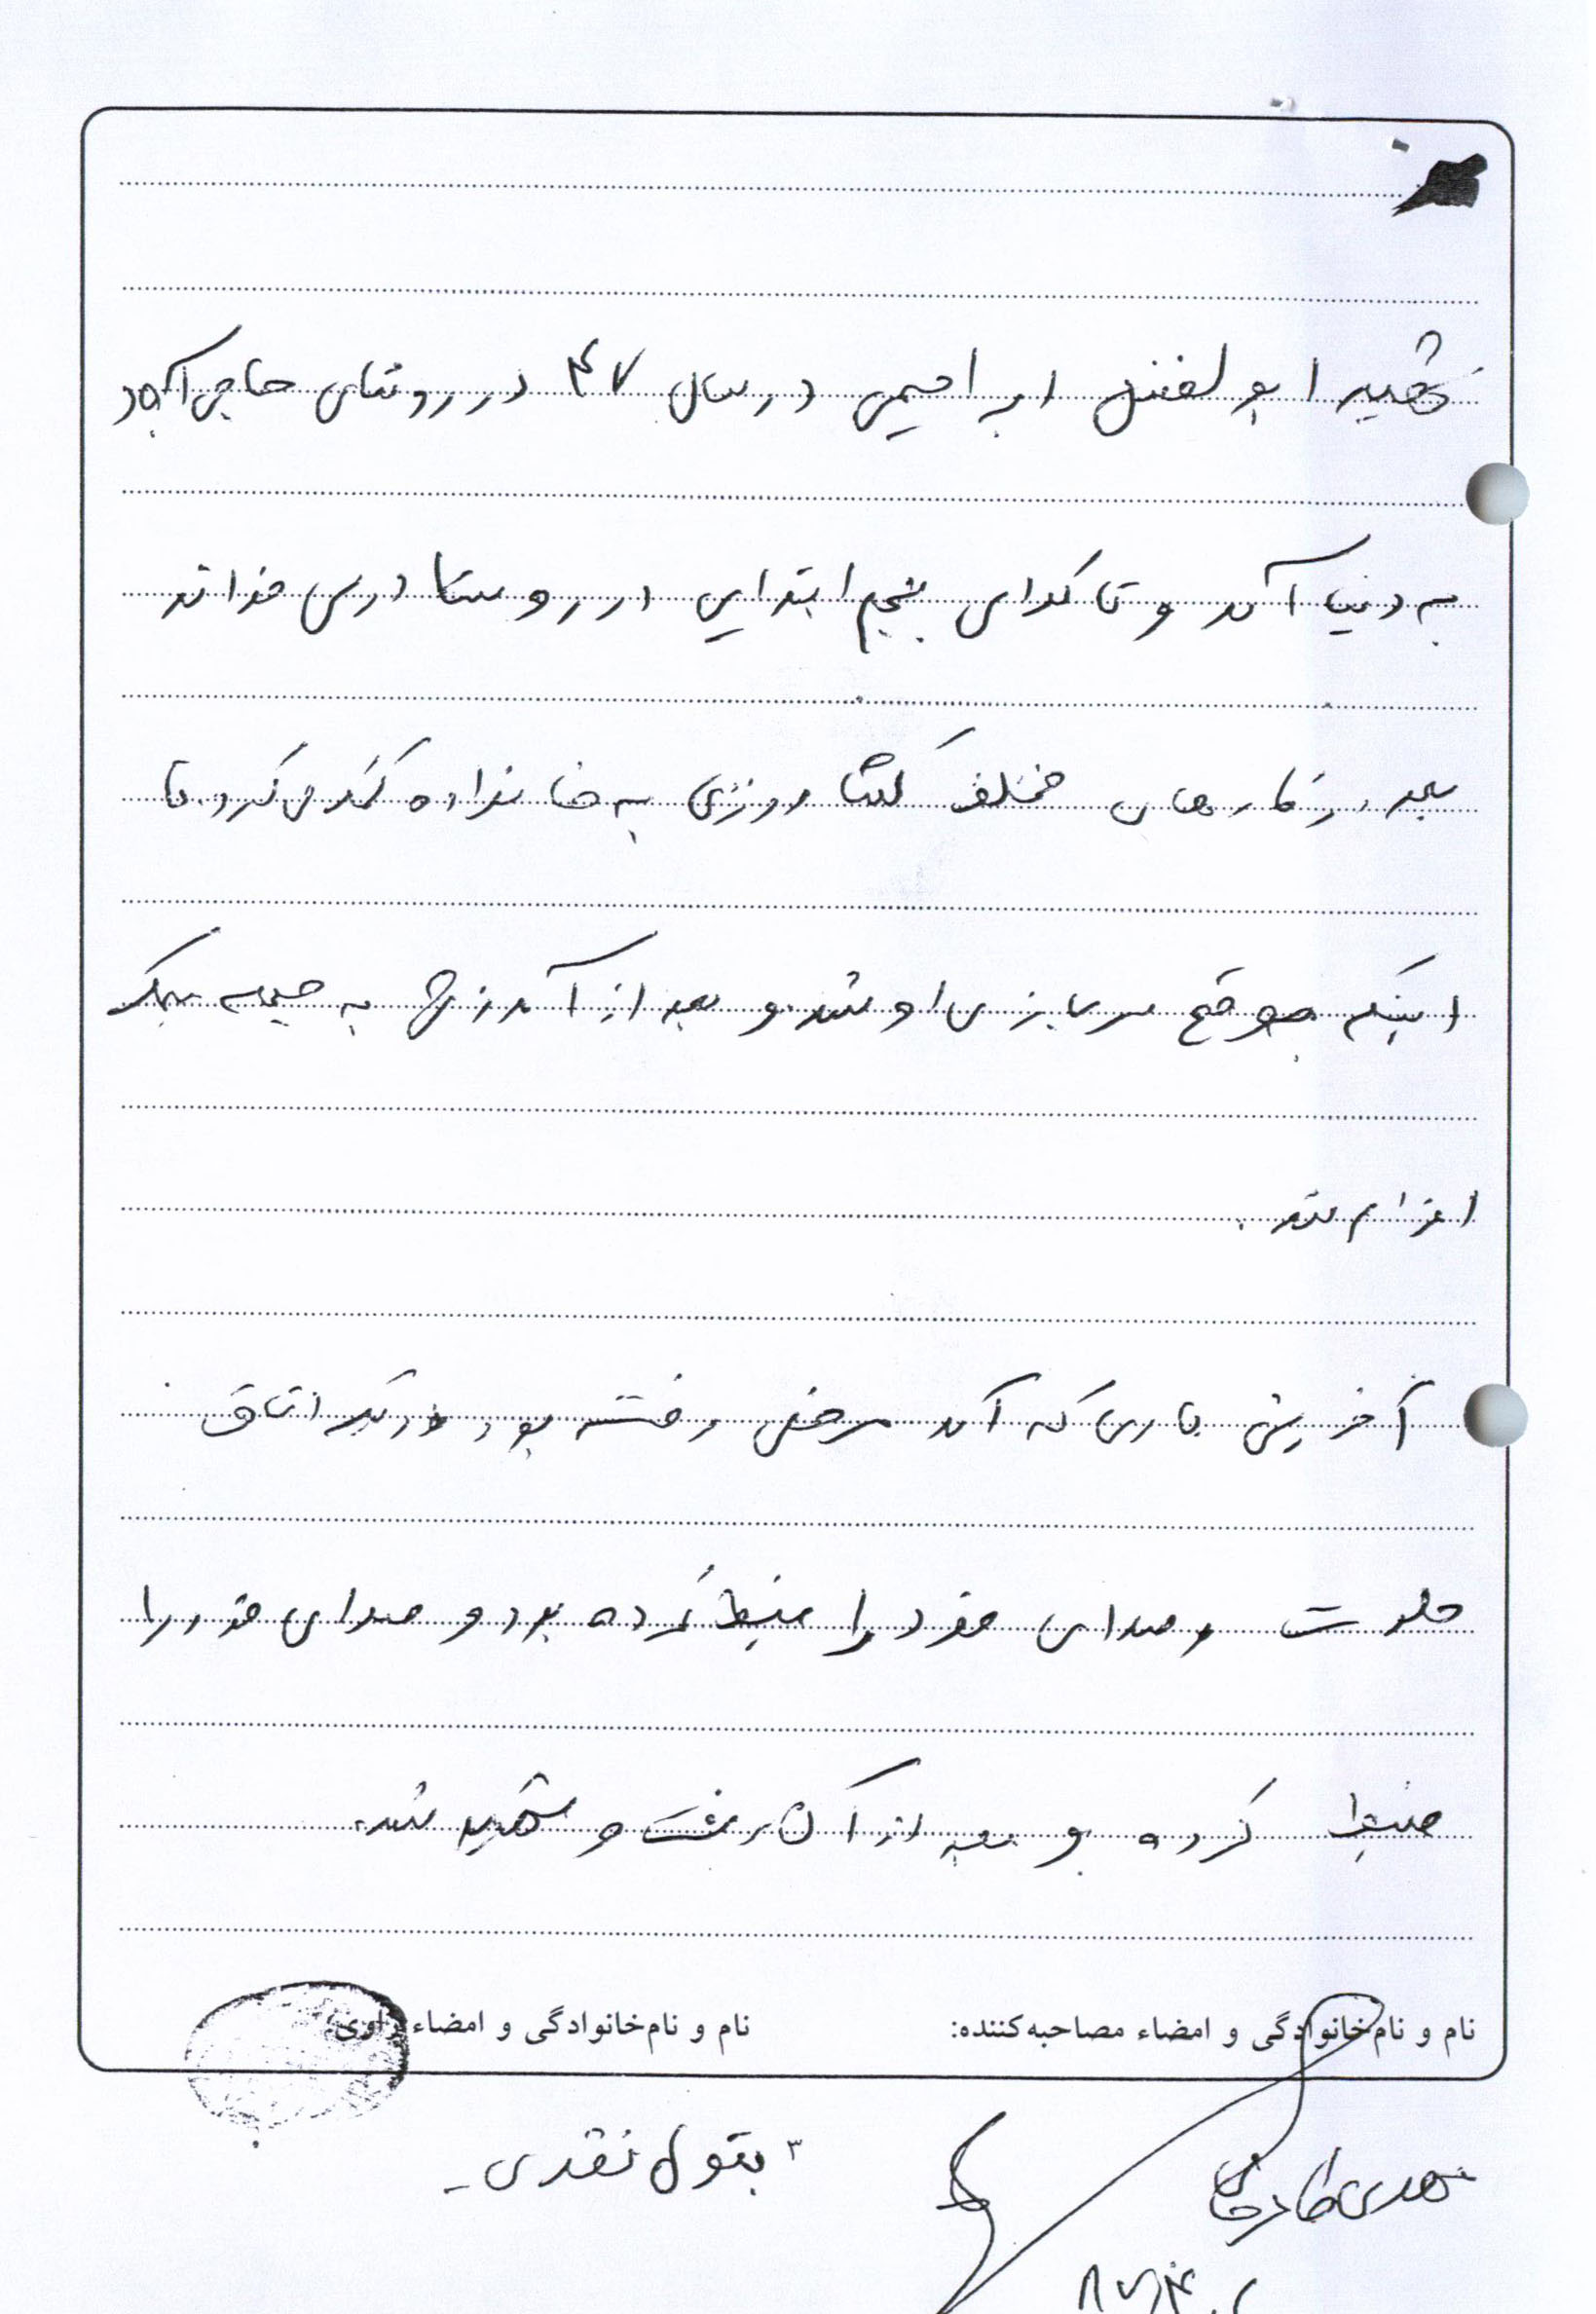 شهید ابوالفضل ابراهیمی در سال ۴۷ در روستای حاجی آباد
به دنیا آمد و تا کلاس پنجم ابتدایی در روستا درس خواند
بعد در کارهای مختلف کشاورزی به خانواده کمک می کرد تا
اینکه موقع سربازی او شد و بعد از آموزش به جبهه جنگ
اعزام شد.
آخرین باری که آمد مرخصی رفته بود در یک اتاق
خلوت و صدای خود را ضبط کرده بود و صدای خود را
ضبط کرده و بعد از آن رفت و شهید شد.
نام و نام‌خانوادگی و امضاء مصاحبه‌کننده:
نام و نام‌خانوادگی و امضاء راوی:
بتول نقدی
مهدی